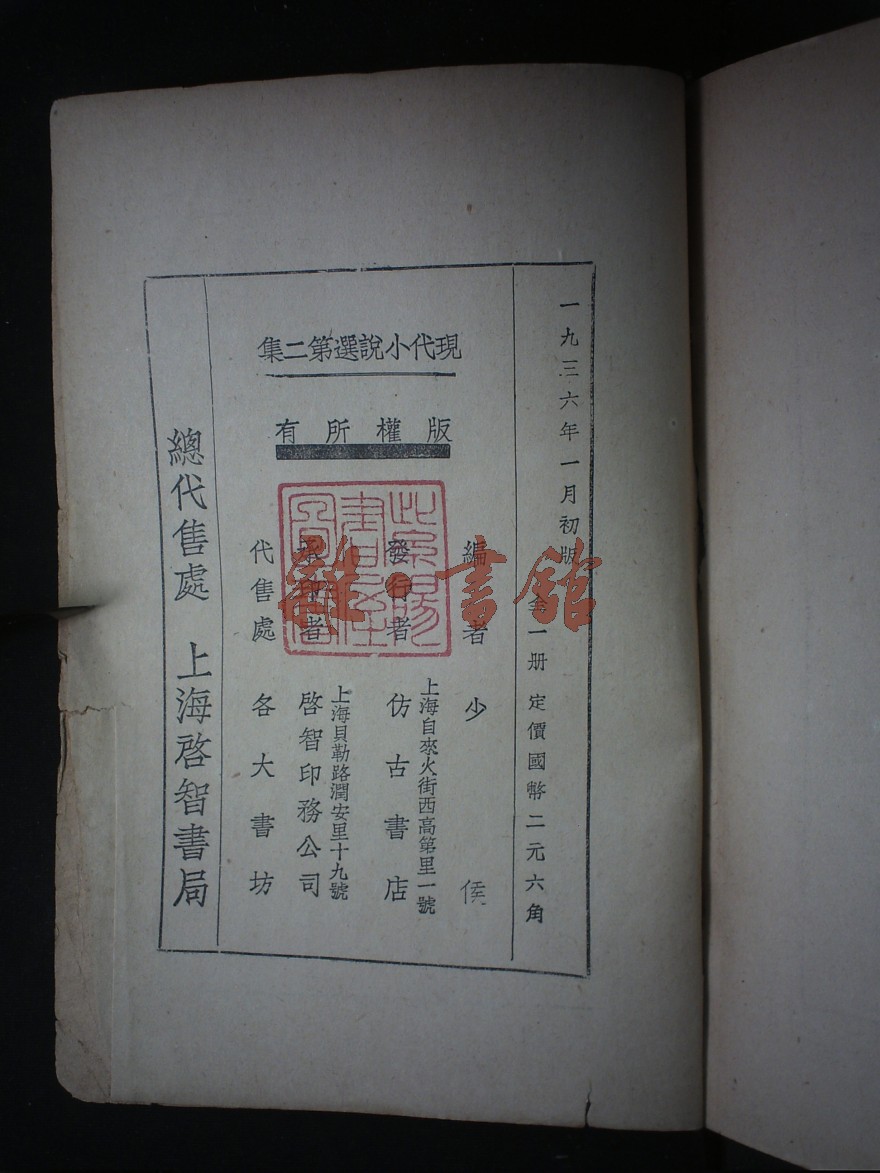 一九三六年一月初版 全一册 定價國幣二元六角
現代小說選第二集
版權所有
編者 少侯
發行者 上海自來火街西高第里一號
仿古書店
承印者 上海貝勒路潤安里十九號
啓智印務公司
代售處 各大書坊
總代售處 上海啓智書局
書館